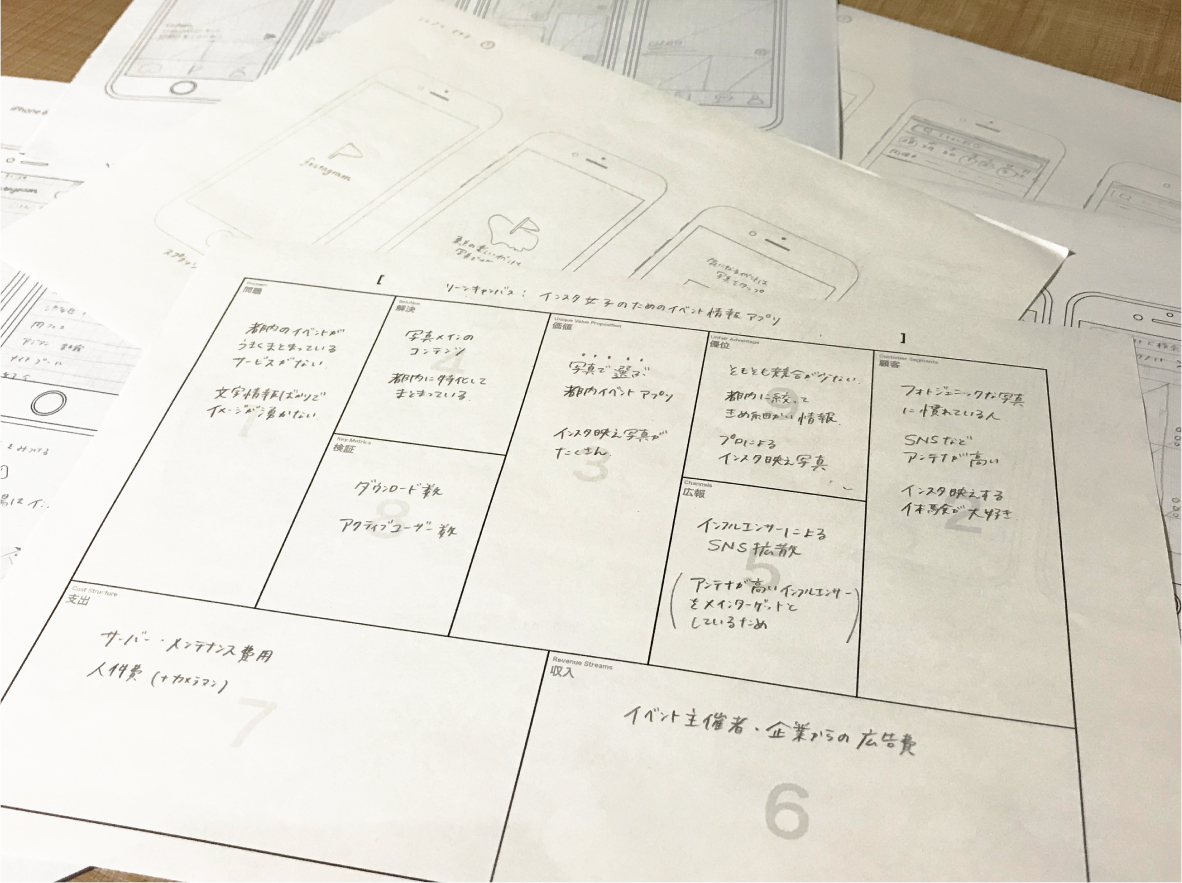 iPhone 6
Festagram
リーンキャンバス：インスタ女子のためのイベント情報アプリ
[ ]
Problem
問題
都内のイベントが
うまくまとまっている
サービスがない
文字情報ばかりで
イメージが湧かない
1
Solution
解決
写真メインの
コンテンツ
都内に特化して
まとまっている
4
Key Metrics
検証
ダウンロード数
アクティブユーザー数
8
Unique Value Proposition
価値
写真で選ぶ
都内イベントアプリ
インスタ映え写真が
たくさん
3
Unfair Advantage
優位
そもそも競合が少ない
都内に絞って
きめ細かい情報
プロによる
インスタ映え写真
9
Channels
広報
インフルエンサーによる
SNS拡散
(アンテナが高いインフルエンサー
をメインターゲットと
しているため)
5
Customer Segments
顧客
フォトジェニックな写真
に慣れている人
SNSなど
アンテナが高い
インスタ映えする
体験が大好き
2
Cost Structure
支出
サーバー・メンテナンス費用
人件費(+カメラマン)
7
Revenue Streams
収入
イベント主催者・企業からの広告費
6